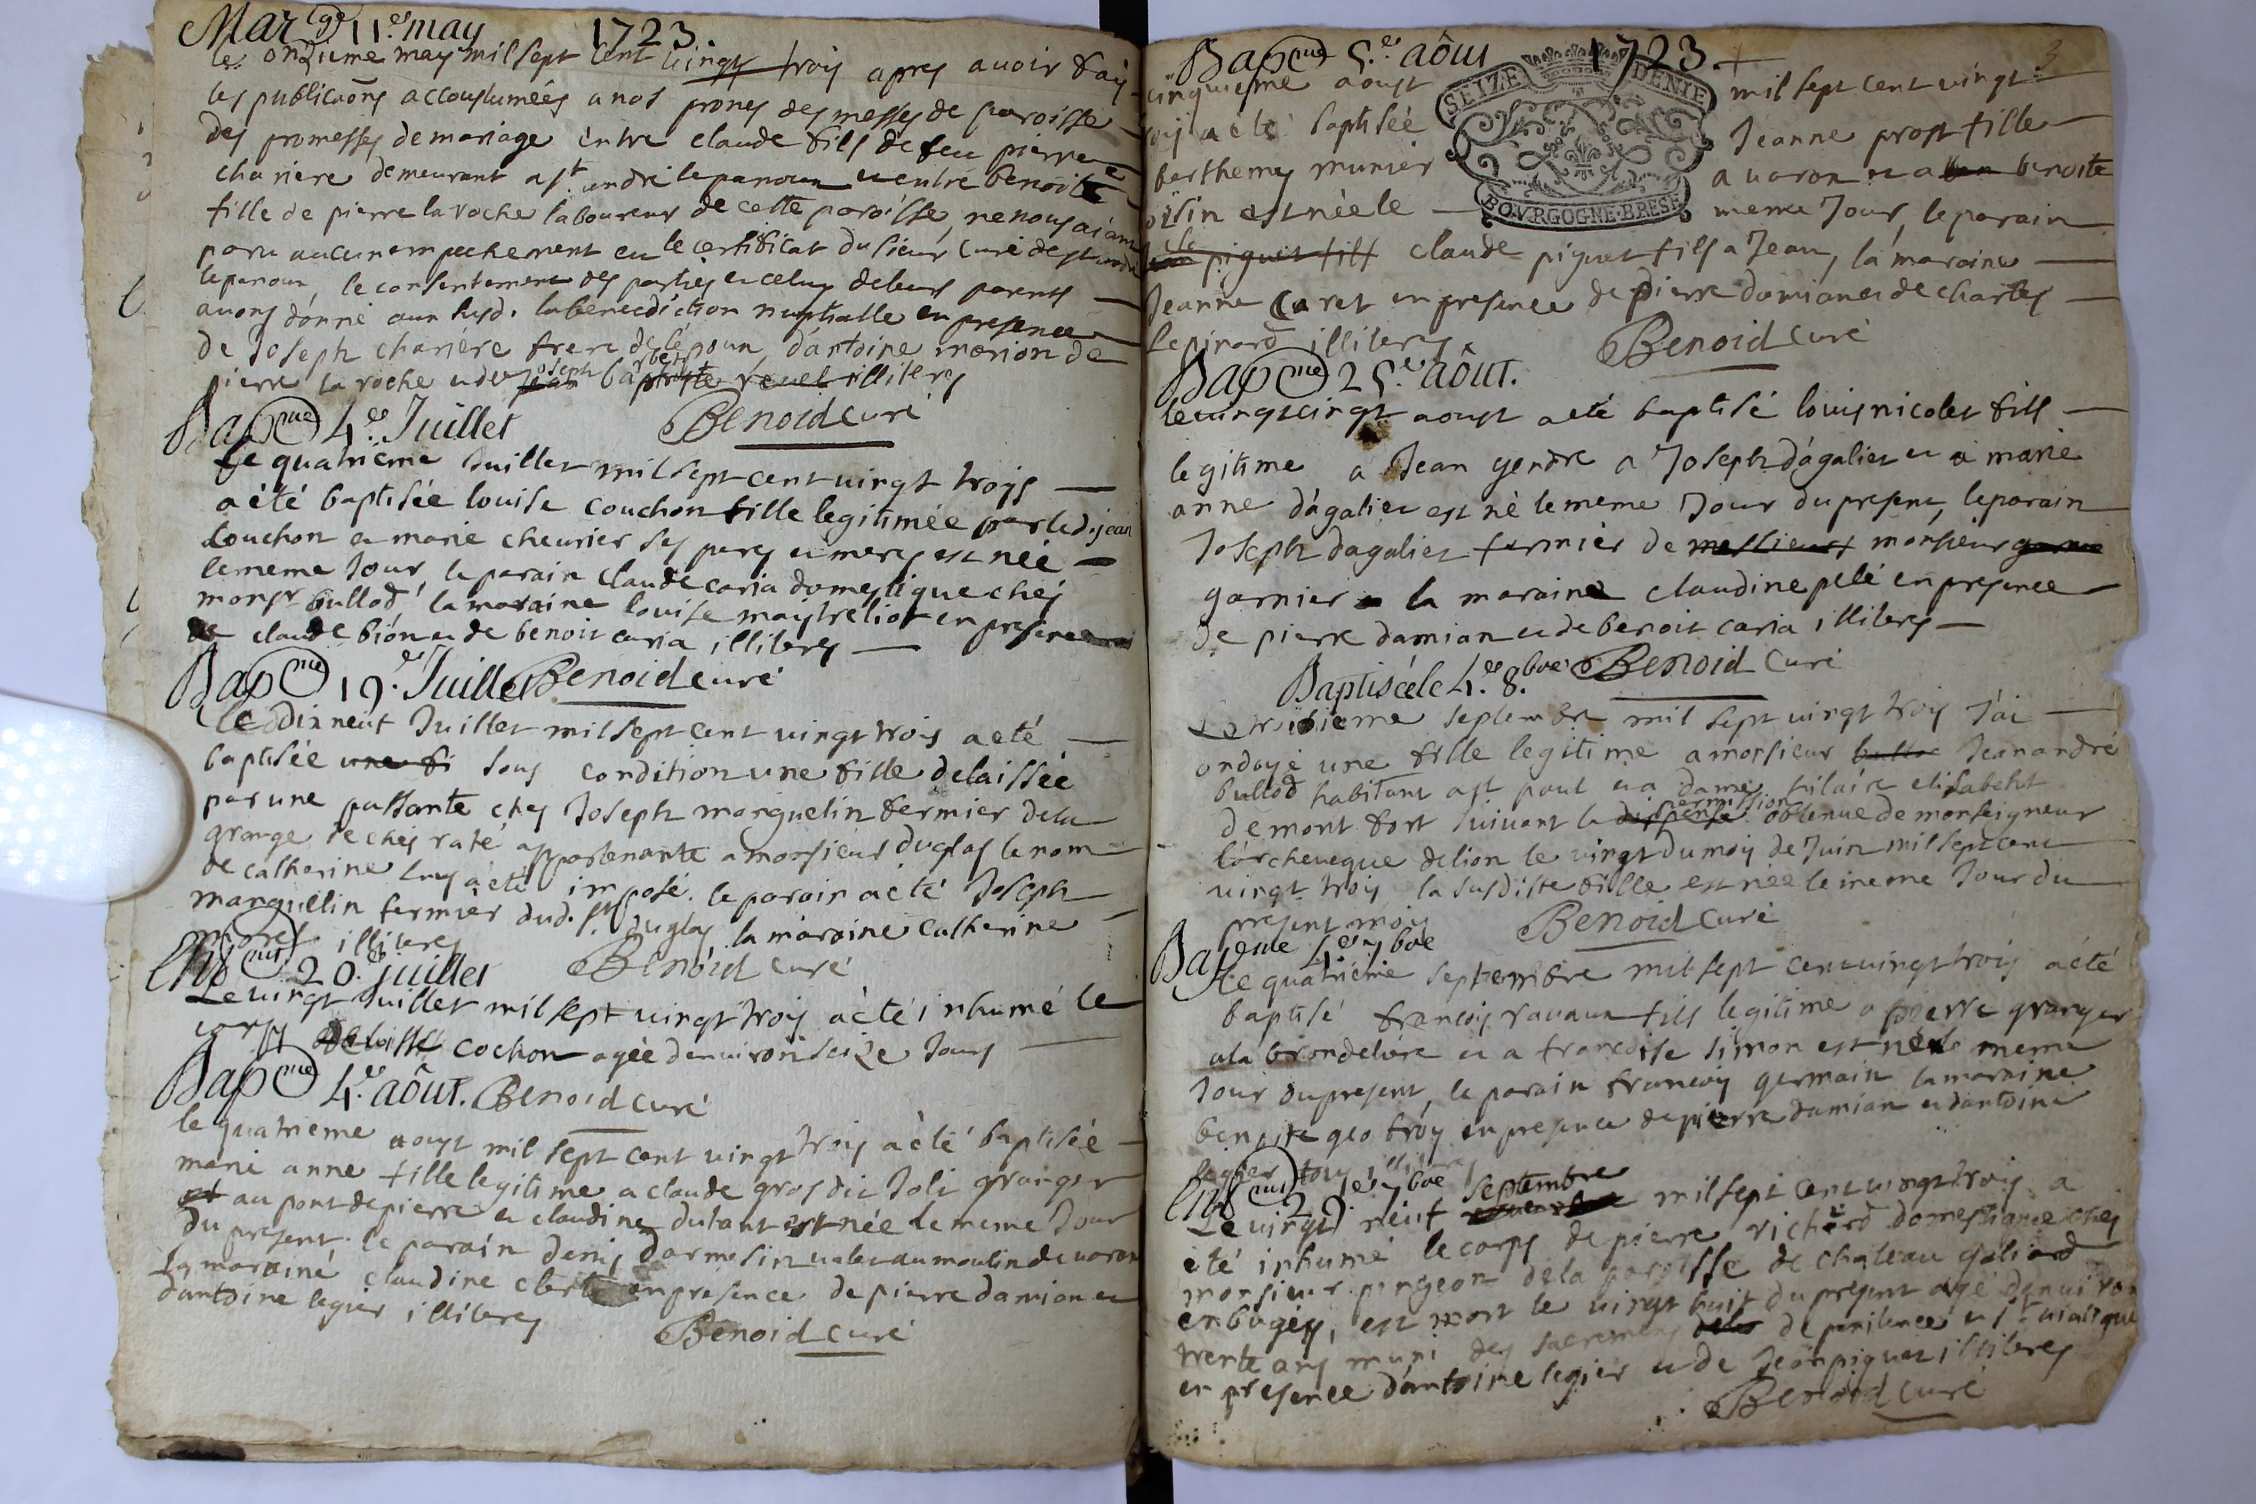 Mar.ge 11.e may 1723.
le onzieme may mil sept cent vingt trois apres avoir fait
les publicaõns accoustumées a nos prones des messes de paroisse
des promesses de mariage entre claude fils de feu pierre
chariere demeurant a st. andre le panoux et entre benoite
fille de pierre la roche laboureur de cette paroisse, ne nous aiant
paru aucun empechement eu le certificat du sieur curé de st andré
le panoux le consentement des parties et celuy de leurs parents
avons donné aux susd. la benediction nuptialle en presence
de Joseph chariére frere de lépoux, d'antoine morion de
pierre la roche et de joseph illiteres
Benoid curé
Bapme 4.e Juillet
Le quatrieme Juillet mil sept cent vingt trois
a été baptisée louise couchon fille legitimée par led. jean
couchon et marie cheurier ses peres et meres est née
le meme Jour, le parain claude caria domestique chés
monsr bullod, la maraine louise maistreliot en presence
de claude bion et de benoit caria illiteres
Benoid curé
Bapme 19.e Juillet
Le dix neuf Juillet mil sept cent vingt trois a eté
baptisée une fi sous condition une fille delaissée
par une passante chez Joseph marguelin fermier de la
grange de chés raté appartenante a monsieur duglas le nom
de catherine luy a eté imposé. le parain a eté Joseph
marguelin fermier dud. sr duglas, la maraine catherine
illiteres
Benoid curé
Enterme 20.e juillet
Le vingt Juillet mil sept vingt trois a été inhumé le
corps de louise cochon agée denviron seize Jours
Bapme 4.e aôut. Benoid curé
le quatrieme aoust mil sept cent vingt trois a été baptisée
marie anne fille legitime a claude gros dit Joli granger
au pont de pierre et claudine dutant est née le meme Jour
du present. le parain denis darmesin valet au moulin de varon
la maraine claudine clerte en presence de pierre damian et
d'antoine legier illiteres
Benoid curé
Bapme 5.e aôut 1723.
3
cinquiesme aoust mil sept cent vingt
trois a eté baptisée Jeanne prost fille
berthemy munier a varon et a benoite
oisin est née le meme Jour, le parain
piguet fils claude piguet fils a Jean, la maraine
Jeanne caret en presence de pierre damian et de charles
lepinard illiteres
SEIZE DENIE
BOVRGOGNE·BRESE
Benoid curé
Bapme 25.e aôut.
le vingt cinqt aoust a eté baptisé louis nicolet fils
legitime a Jean gendre a Joseph dágalier et a marie
anne dágalier est né le meme Jour du present, le parain
Joseph dagalier fermier de messieurs monsieur
garnier la maraine claudine pelé en presence
de pierre damian et de benoit caria illiteres
Baptiséele 4.e 8.bre Benoid curé
Le troisieme septembre mil sept vingt trois J'ai
ondoyé une fille legitime a monsieur Jean andré
bullod habitant a st paul et a dame hilaire elisabeht
de mont fort suivant la dispense permission obtenue de monseigneur
lárcheveque de lion le vingt du mois de Juin mil sept cent
vingt trois la susditte fille est née le meme Jour du
present mois
Benoid curé
Bapteme 4.e 7bre
Le quatrieme septembre mil sept cent vingt trois a été
baptisé francois ravaux fils legitime a pierre granger
a la birondeliére et a francoise simon est né le meme
Jour du present, le parain francois germain la maraine
benoite geofroy en presence de pierre damian et d'antoine
legier tous illiteres
Enterme 29.e 7bre
Le vingt neuf septembre mil sept cent vingt trois a
été inhumé le corps de pierre richard domestique chés
monsieur pingeon de la paroisse de chateau galiard
en bugey, est mort le vingt huit du present agé denviron
trente ans muni des sacremens de penitence et st viatique
en presence d'antoine legier et de Jean piguet illiteres
Benoid curé